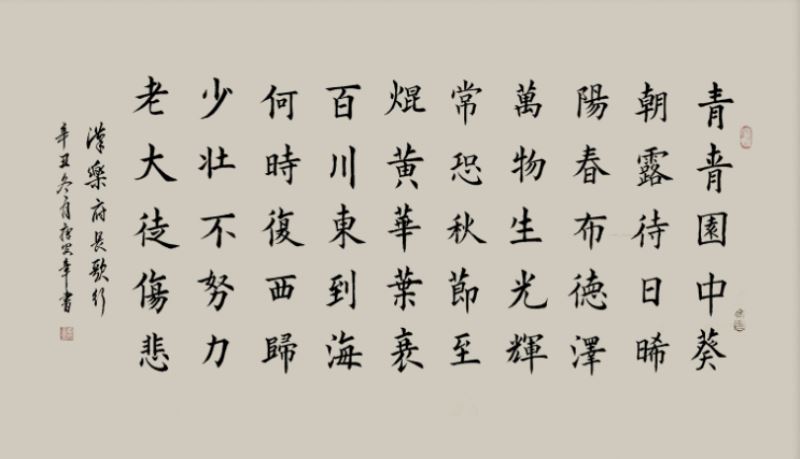 青青園中葵
朝露待日晞
陽春布德澤
萬物生光輝
常恐秋節至
焜黃華葉衰
百川東到海
何時復西歸
少壯不努力
老大徒傷悲
漢樂府長歌行
辛丑冬月
書